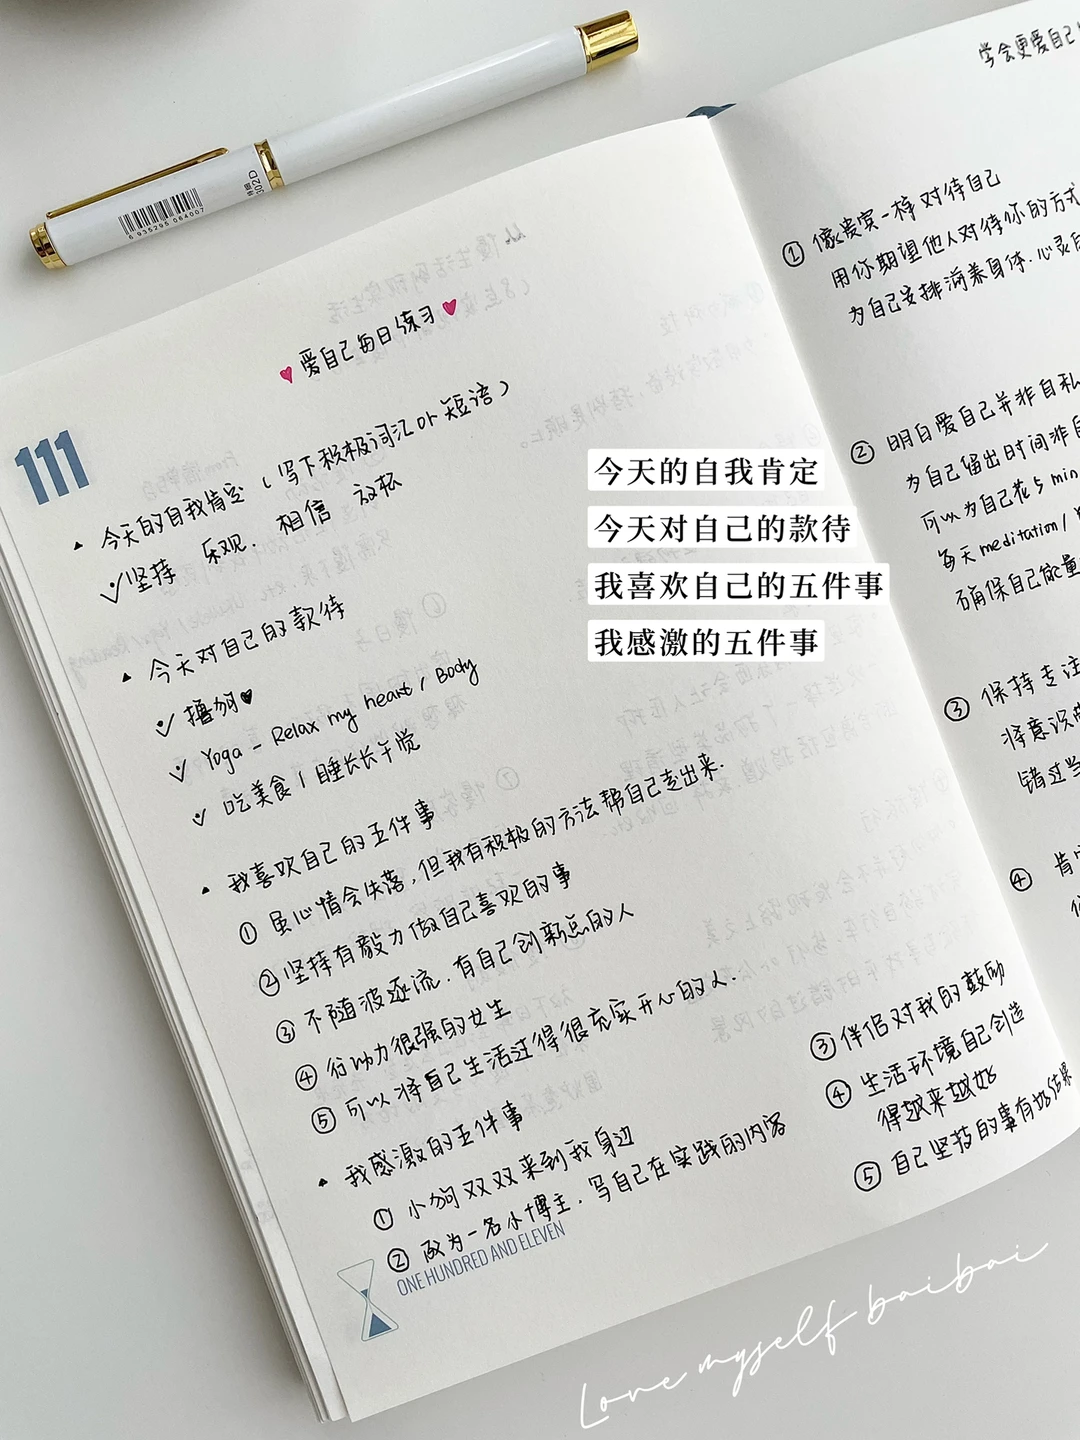 6 935295 064007
爱自己每日练习
111
今天的自我肯定（写下积极词汇 or 短语）
坚持 乐观. 相信 放松
今天对自己的款待
撸狗
Yoga - Relax my heart / Body
吃美食 / 睡长长午觉
我喜欢自己的五件事
① 虽心情会失落,但我有积极的方法帮自己走出来.
② 坚持有毅力做自己喜欢的事
③ 不随波逐流.有自己创新点的人
④ 行动力很强的女生
⑤ 可以将自己生活过得很充实开心的人.
我感激的五件事
① 小狗双双来到我身边
② 成为一名小博主.写自己在实践的内容
ONE HUNDRED AND ELEVEN
③ 伴侣对我的鼓励
④ 生活环境自己创造
得越来越好
⑤ 自己坚持的事有好结果
今天的自我肯定
今天对自己的款待
我喜欢自己的五件事
我感激的五件事
学会更爱自己
① 像贵宾一样对待自己
用你期望他人对待你的方式
为自己安排滋养身体.心灵
② 明白爱自己并非自私
为自己留出时间非自
可以为自己花5 min
每天 meditation /
确保自己能量
③ 保持专注
将意识
错过当
④ 肯
Love myself baibai